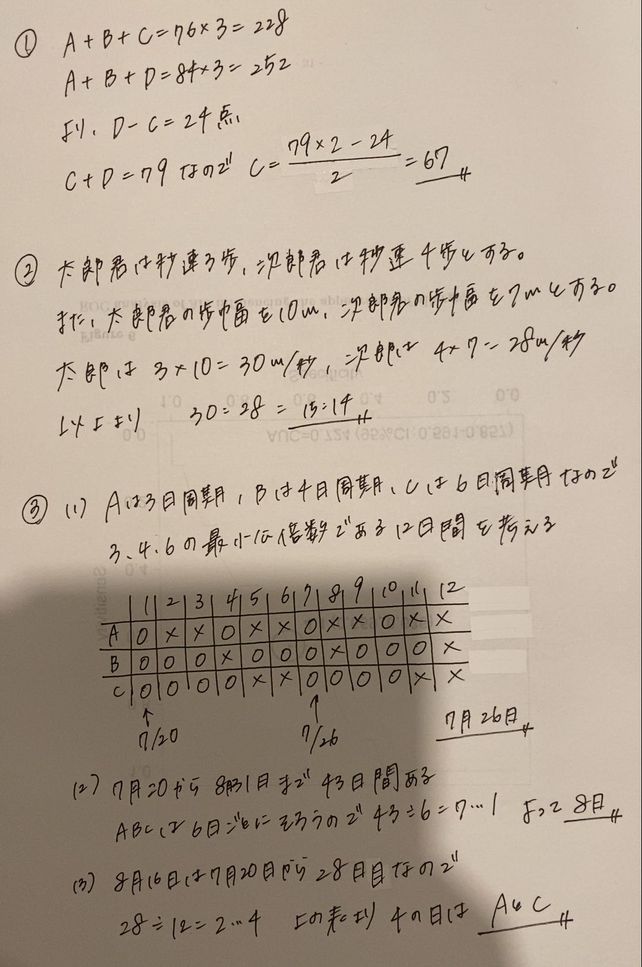 ① A+B+C=76×3=228
A+B+D=84×3=252
より、D-C=24点
C+D=79 なので C= 79×2-24 / 2 =67
② 太郎君は秒速3歩、次郎君は秒速4歩とする。
また、太郎君の歩幅を10m、次郎君の歩幅を7mとする。
太郎は 3×10=30m/秒、次郎は 4×7=28m/秒
以上より 30:28=15:14
③ (1) Aは3日周期、Bは4日周期、Cは6日周期なので
3、4、6の最小公倍数である12日間を考える
1 2 3 4 5 6 7 8 9 10 11 12
A O × × O × × O × × O × ×
B O O O × O O O × O O O ×
C O O O O × × O O O O × ×
↑ ↑
7/20 7/26 7月26日
(2) 7月20から8月31日まで43日間ある
ABCは6日ごとにそろうので 43÷6=7…1 よって8日
(3) 8月16日は7月20日から28日目なので
28÷12=2…4 上の表より 4の日は AとC